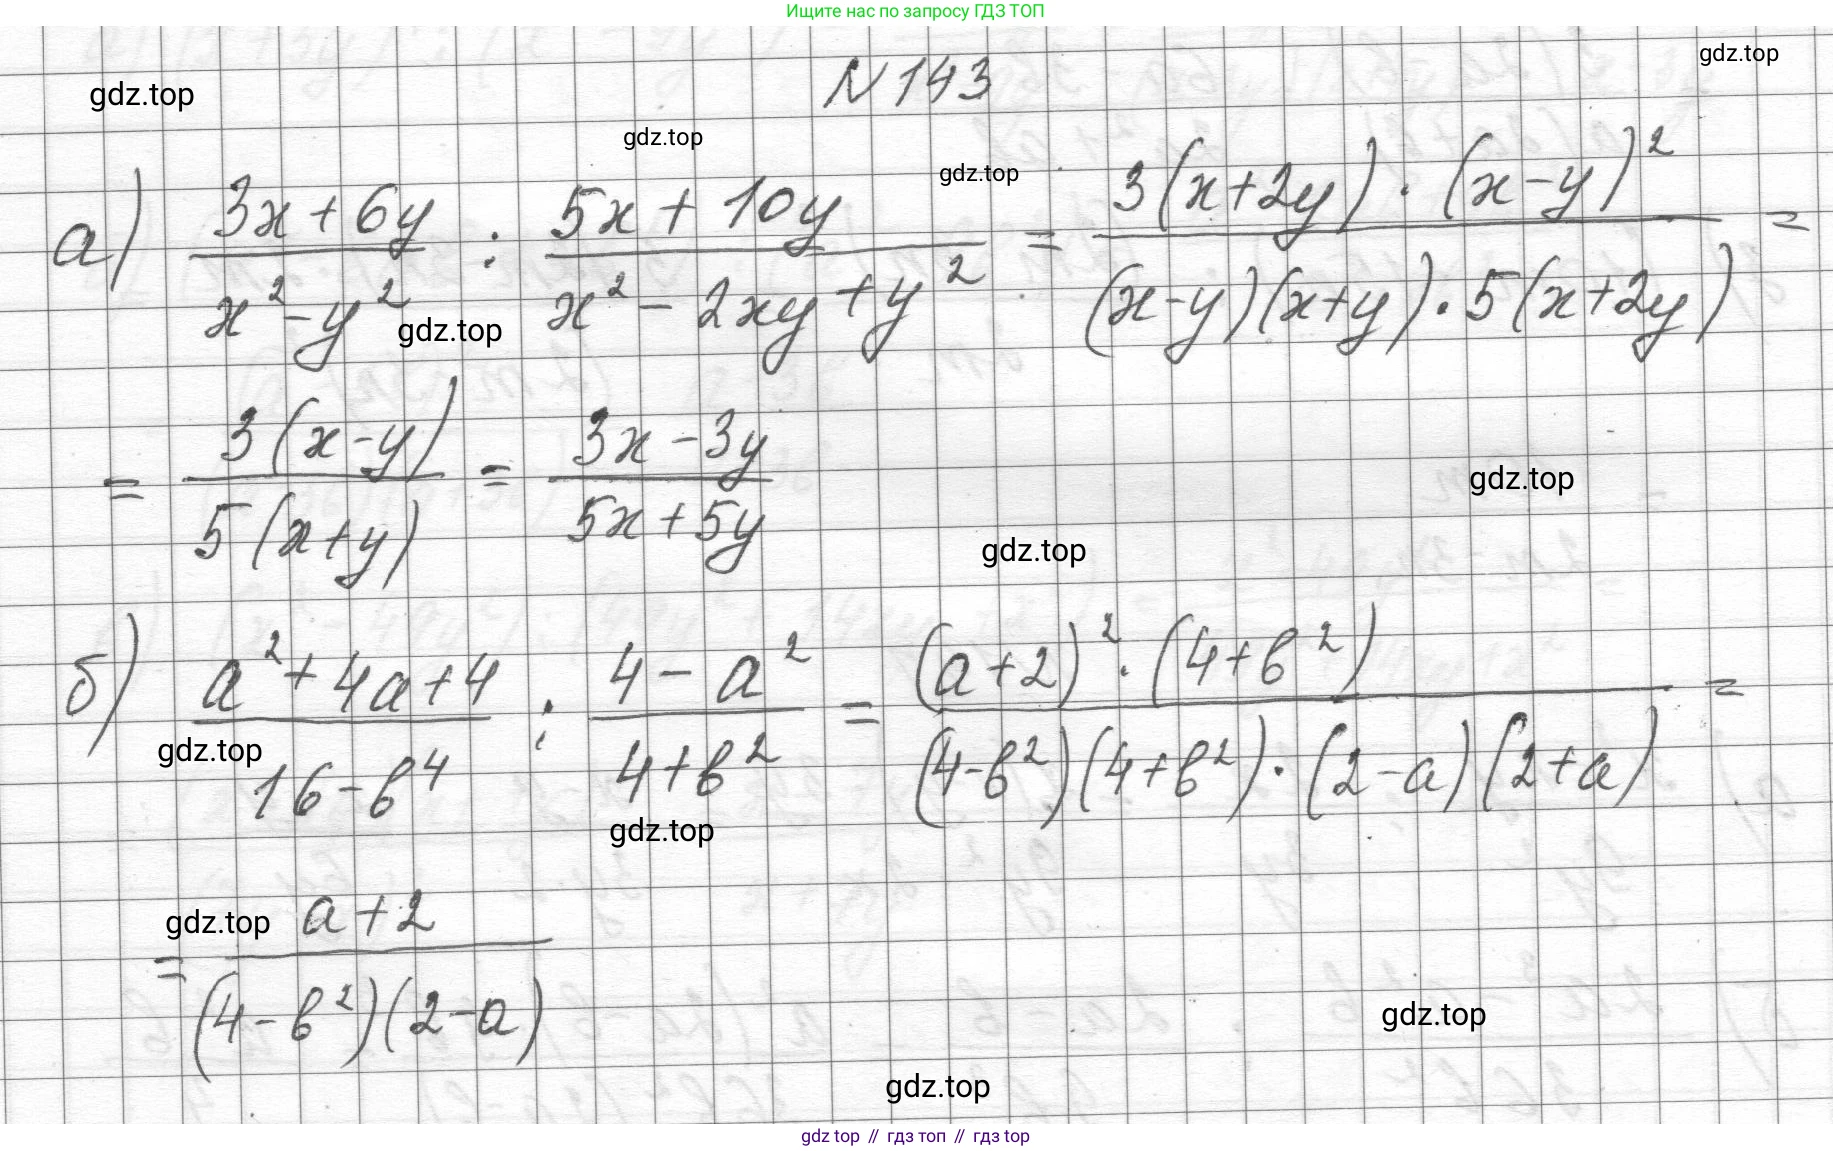 Ищите нас по запросу ГДЗ ТОП
N 143
gdz.top
gdz.top
gdz.top
gdz.top
а) (3x + 6y)/(x² - y²) : (5x + 10y)/(x² - 2xy + y²) = (3(x+2y) · (x-y)²)/((x-y)(x+y) · 5(x+2y)) =
gdz.top
= (3(x-y))/(5(x+y)) = (3x - 3y)/(5x + 5y)
gdz.top
gdz.top
б) (a² + 4a + 4)/(16 - b⁴) : (4 - a²)/(4 + b²) = ((a+2)² · (4+b²))/((4-b²)(4+b²) · (2-a)(2+a)) =
gdz.top
gdz.top
gdz.top
= (a+2)/((4-b²)(2-a))
gdz.top
gdz.top
gdz top // гдз топ // гдз top